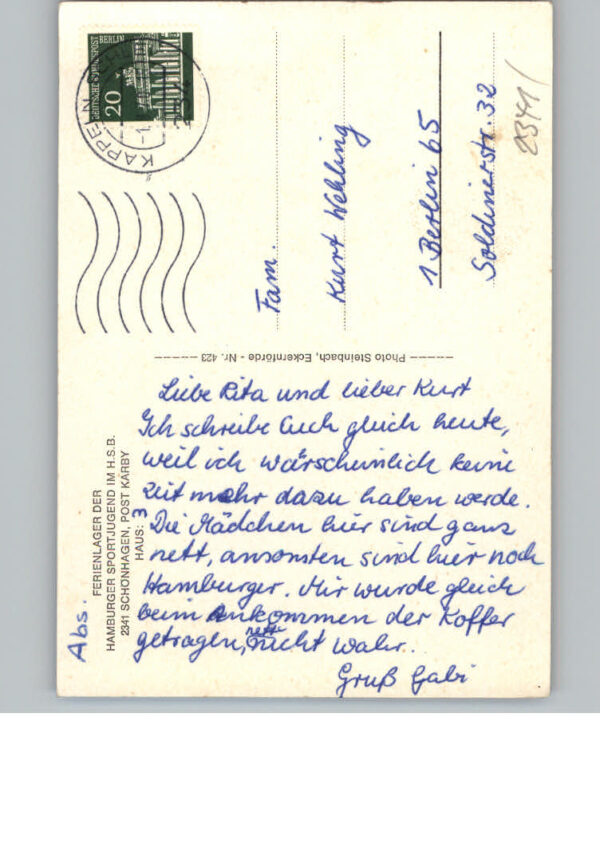 Liebe Rita und lieber Kurt
Ich schreibe Euch gleich heute,
weil ich wärscheinlich keine
Zeit mehr dazu haben werde.
Die Mädchen hier sind ganz
nett, ansonsten sind hier noch
Hamburger. Mir wurde gleich
beim Ankommen der Koffer
getragen, nett nicht wahr..
Gruß Gabi
Abs.
FERIENLAGER DER
HAMBURGER SPORTJUGEND IM H.S.B.
2341 SCHÖNHAGEN, POST KARBY
HAUS: 3
Photo Steinbach, Eckernförde - Nr. 423
DEUTSCHE BUNDESPOST
BERLIN
20
KAPPELN
Fam.
Kurt Wehling
1 Berlin 65
Soldinerstr. 32
2341/